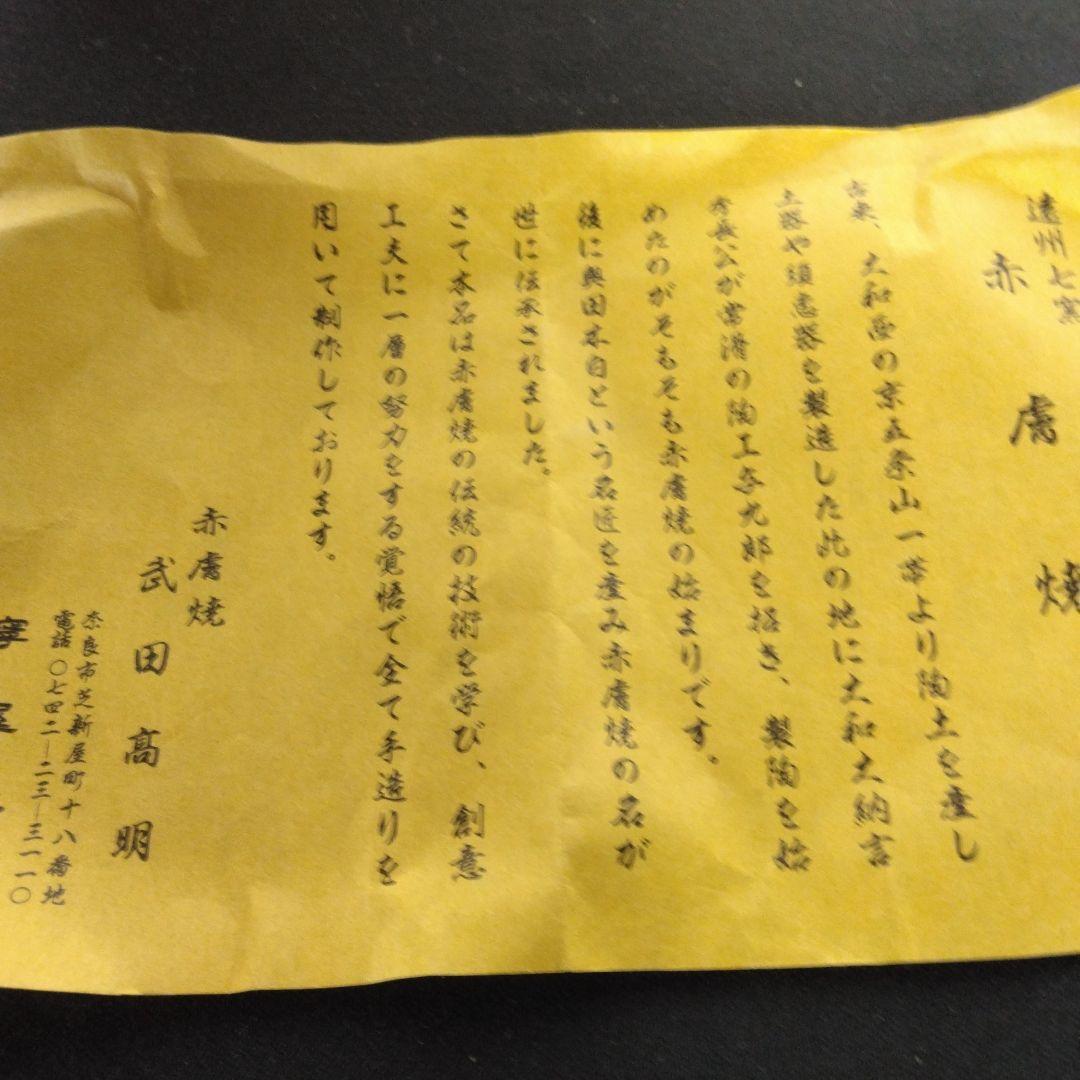 遠州七窯
赤膚焼
古来、大和西の京五条山一帯より陶土を産し
土器や須恵器を製造した此の地に大和大納言
秀長公が常滑の陶工与九郎を招き、製陶を始
めたのがそもそも赤膚焼の始まりです。
後に奥田木白という名匠を産み赤膚焼の名が
世に伝承されました。
さて本品は赤膚焼の伝統の技術を学び、創意
工夫に一層の努力をする覚悟で全て手造りを
用いて制作しております。
赤膚焼
武田高明
奈良市芝新屋町十八番地
電話〇七四二―二三―三一一〇
寧屋